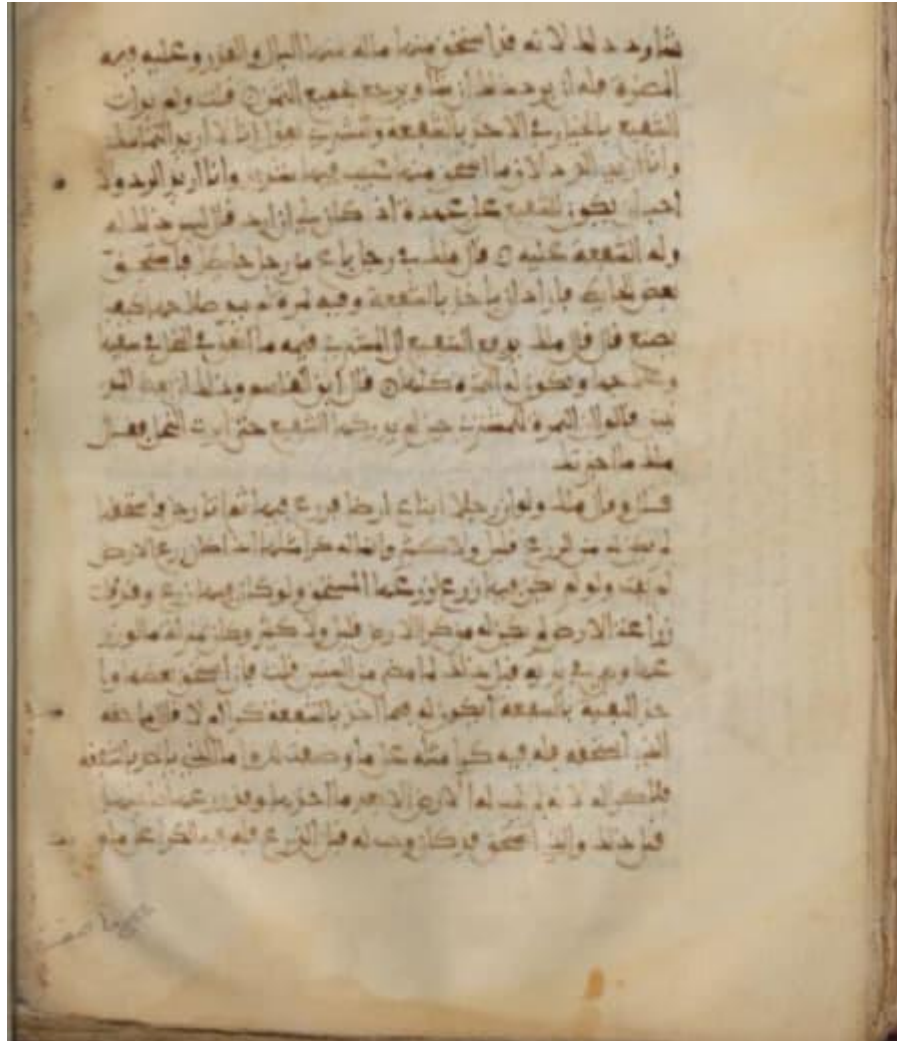 شا رد ذلك لانه قد استحق منها ماله منها البال والضرر وعليه فيه
المضرة فله ان يرد ذلك ان شا ويرجع بجميع الثمن قلت ولم يرات
الشفيع بالخيار في الاخذ بالشفعة والمشتري يقول انا لا اريد التماسك
وانا اريد الرد لان ما استحق منه علي فيها مضرة وانا اريد الرد ولا
احب ان يكون للشفيع علي عهدة اذ كان لي ان ارد قال ليس ذلك له
وله الشفعة عليه قال ملك في رجل باع من رجل حايطا فاستحق
بعض الحايط فاراد ان ياخذ بالشفعة وفيه ثمرة لم يبد صلاحها كيف
يصنع قال قال ملك يدفع الشفيع الى المشتري قيمة ما انفق في النخل في سقيه
وعلاجها وتكون له الثمرة كلها قال ابن القاسم وذلك ان بعض المد
نيين قالوا ان الثمرة للمشتري حين لم يدركها الشفيع حتى ابرت النخل فقال
ملك ما اخبرتك
قال وقال ملك ولو ان رجلا ابتاع ارضا فزرع فيها ثم اتا رجل فاستحقها
لم يكن له من الزرع قليل ولا كثير وانما له كرا مثلها اذا كان زرع الارض
لم يفت ولو لم يكن فيها زرع لزرعها المستحق ولو كان فيها زرع وقد فات
زراعة الارض لم يكن له من كرا الارض قليل ولا كثير وكان بمنزلة مال
قبل ذلك لما مضى من السنين قلت فان استحق بعضها وا
خذ البقية بالشفعة ايكون له فيما اخذ بالشفعة كرا ام لا قال اما حقه
الذي استحقه فله فيه كرا مثله على ما وصفت لك واما الذي ياخذ بالشفعة
فلا كرا له لانه لم تجب له الارض الا بعد ما اخذها وقد زرعها صاحبها
قبل ذلك والذي استحق قد كان وجب له قبل الزرع فله فيه الكرا على ما